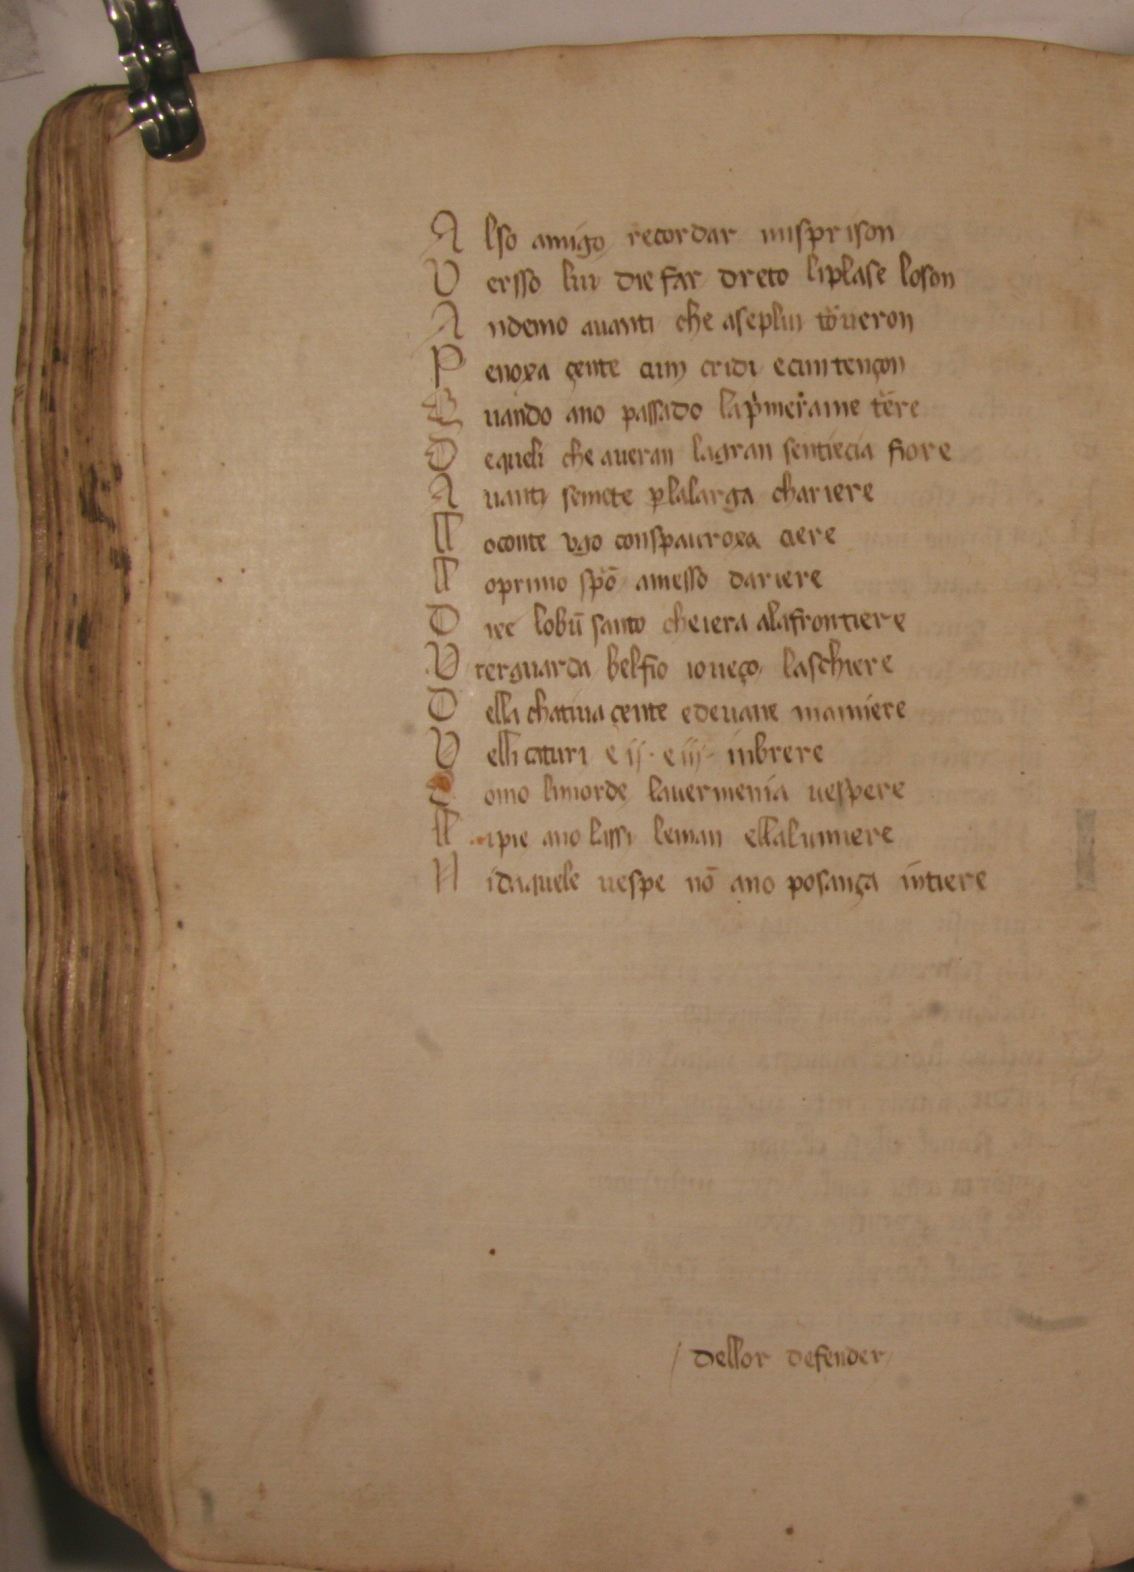 A lso amigo recordar misprison
V ersso lui die far dreto liplase loson
A ndemo auanti che aseplui to͛ueron
P enoxa çente cum cridi ecuntençon
Q uando ano passado lap͛mer͛aine te͛re
D equeli che aueran lagran sentiecia fiore
A uanti semete p̱lalarga chariere
L oconte vgo conspauroxa ciere
L oprimo spō amesso dariere
D ixe lobū santo cheiera alafrontiere
V terguarda belfio ioueço laschiere
D ella chatiua çente edeuane mainiere
V elli caturi e ij· e iij· inbrere
C omo limorde lauermenia uespere
L ipie ano lassi leman ellalumiere
N idaquele uespe nō ano posança īntiere
/ dellor defender /